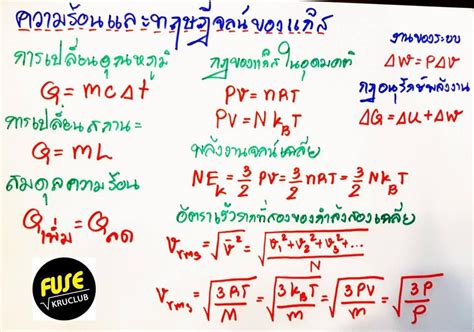 ความร้อนและทฤษฎีจลน์ของแก๊ส
การเปลี่ยนอุณหภูมิ
Q = mcΔt
การเปลี่ยนสถานะ
Q = mL
สมดุลความร้อน
Qเพิ่ม = Qลด
กฎของแก๊สในอุดมคติ
PV = nRT
PV = Nk_BT
พลังงานจลน์เฉลี่ย
NE_k = 3/2 PV = 3/2 nRT = 3/2 Nk_BT
อัตราเร็วรากที่สองของกำลังสองเฉลี่ย
v_rms = √(v̄²) = √((v₁² + v₂² + v₃² + ...)/N)
v_rms = √(3RT/M) = √(3k_BT/m) = √(3PV/m) = √(3P/ρ)
งานของระบบ
ΔW = PΔV
กฎอนุรักษ์พลังงาน
ΔQ = ΔU + ΔW
FUSE
√KRUCLUB